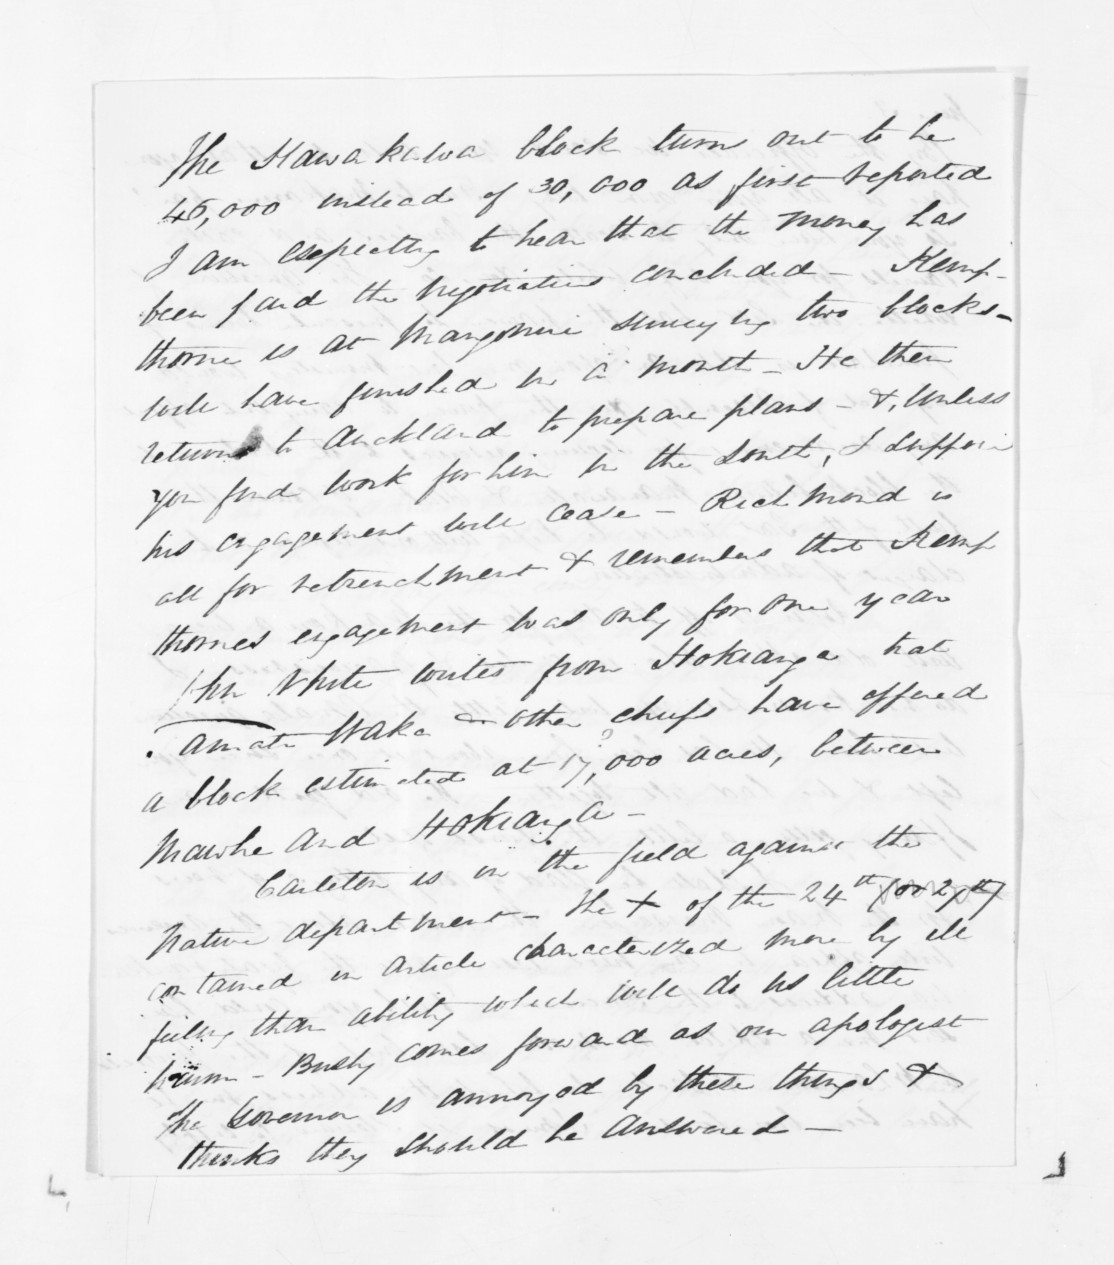 The Kawakawa block turns out to be
45,000 instead of 30,000 as first reported
I am expecting to hear that the money has
been paid the negotiations concluded - Kemp-
thorne is at Mangonui surveying two blocks -
will have finished in a month - He then
returns to Auckland to prepare plans - &, unless
you find work for him in the South, I suppose
his engagement will cease - Richmond is
all for retrenchment & remembers that Kemp
thornes engagement was only for one year
John White writes from Hokianga that
Tamati Waka & other chiefs have offered
a block estimated at 17,000 acres, between
Mawhe and Hokianga -
Carleton is in the field against the
Native department - The + of the 24th
contained an article characterized more by ill
feeling than ability which will do us little
harm - Busby comes forward as our apologist
The Governor is annoyed by these things &
thinks they should be answered -